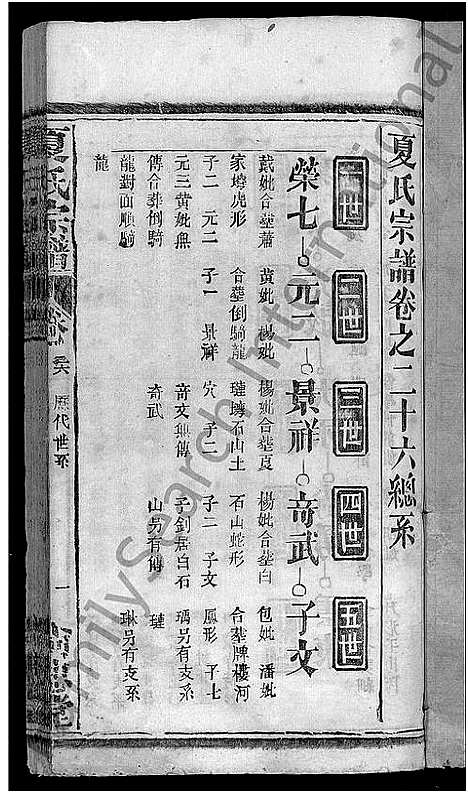 夏氏宗譜卷之二十六總系
一世 二世 三世 四世 五世
榮七 元二 景祥 奇武 子文
戴妣合塟蕭 黃妣 楊妣 楊妣合塟夏 楊妣合塟白 包妣 潘妣
家塆虎形 合塟倒騎龍 璉塆石山土 石山蛇形 合塟牌樓河
子二 元二 子一 景祥 穴 子二 子二 子文 鳳形 子七
元三黃妣無 奇文無傳 子釗居白石 瑀另有支系
傳合塟倒騎 奇武 山另有傳 璉
龍對面順騎 琳另有支系
龍
夏氏宗譜
卷 歷代世系
一
FamilySearch International